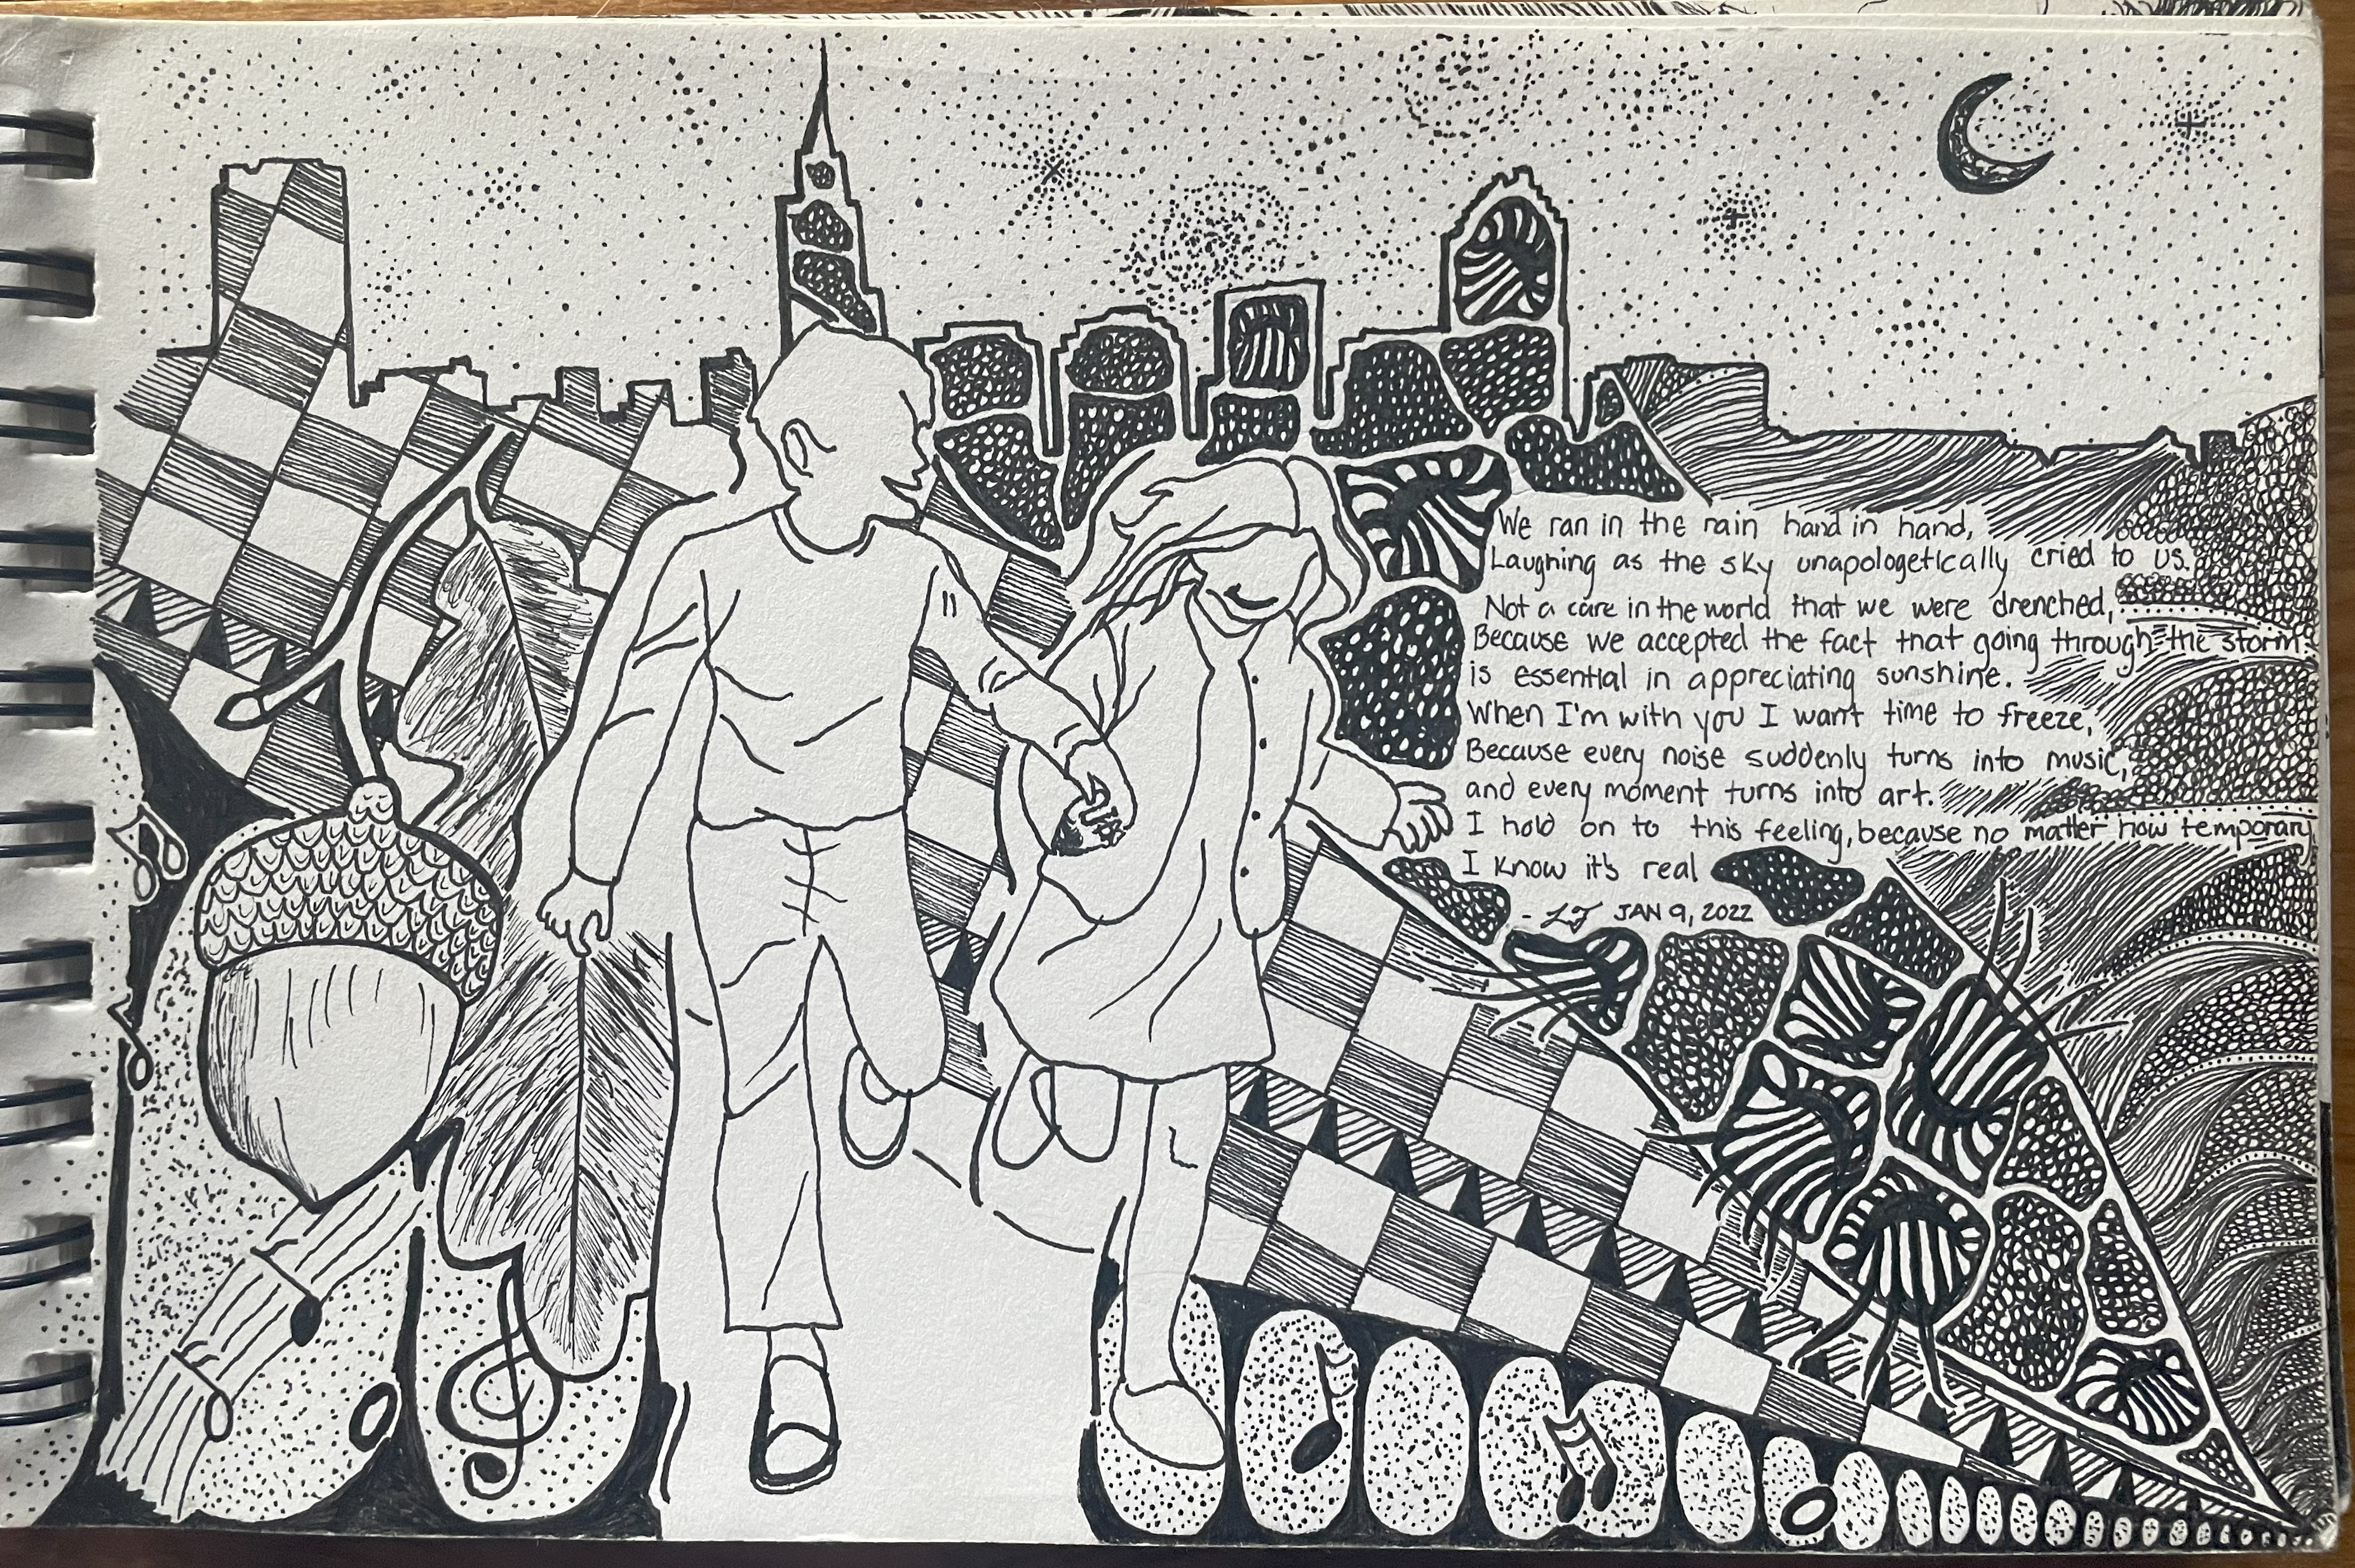 We ran in the rain hand in hand,
Laughing as the sky unapologetically cried to us.
Not a care in the world that we were drenched,
Because we accepted the fact that going through the storm
is essential in appreciating sunshine.
When I'm with you I want time to freeze,
Because every noise suddenly turns into music,
and every moment turns into art.
I hold on to this feeling, because no matter how temporary
I know it's real
JAN 9, 2022